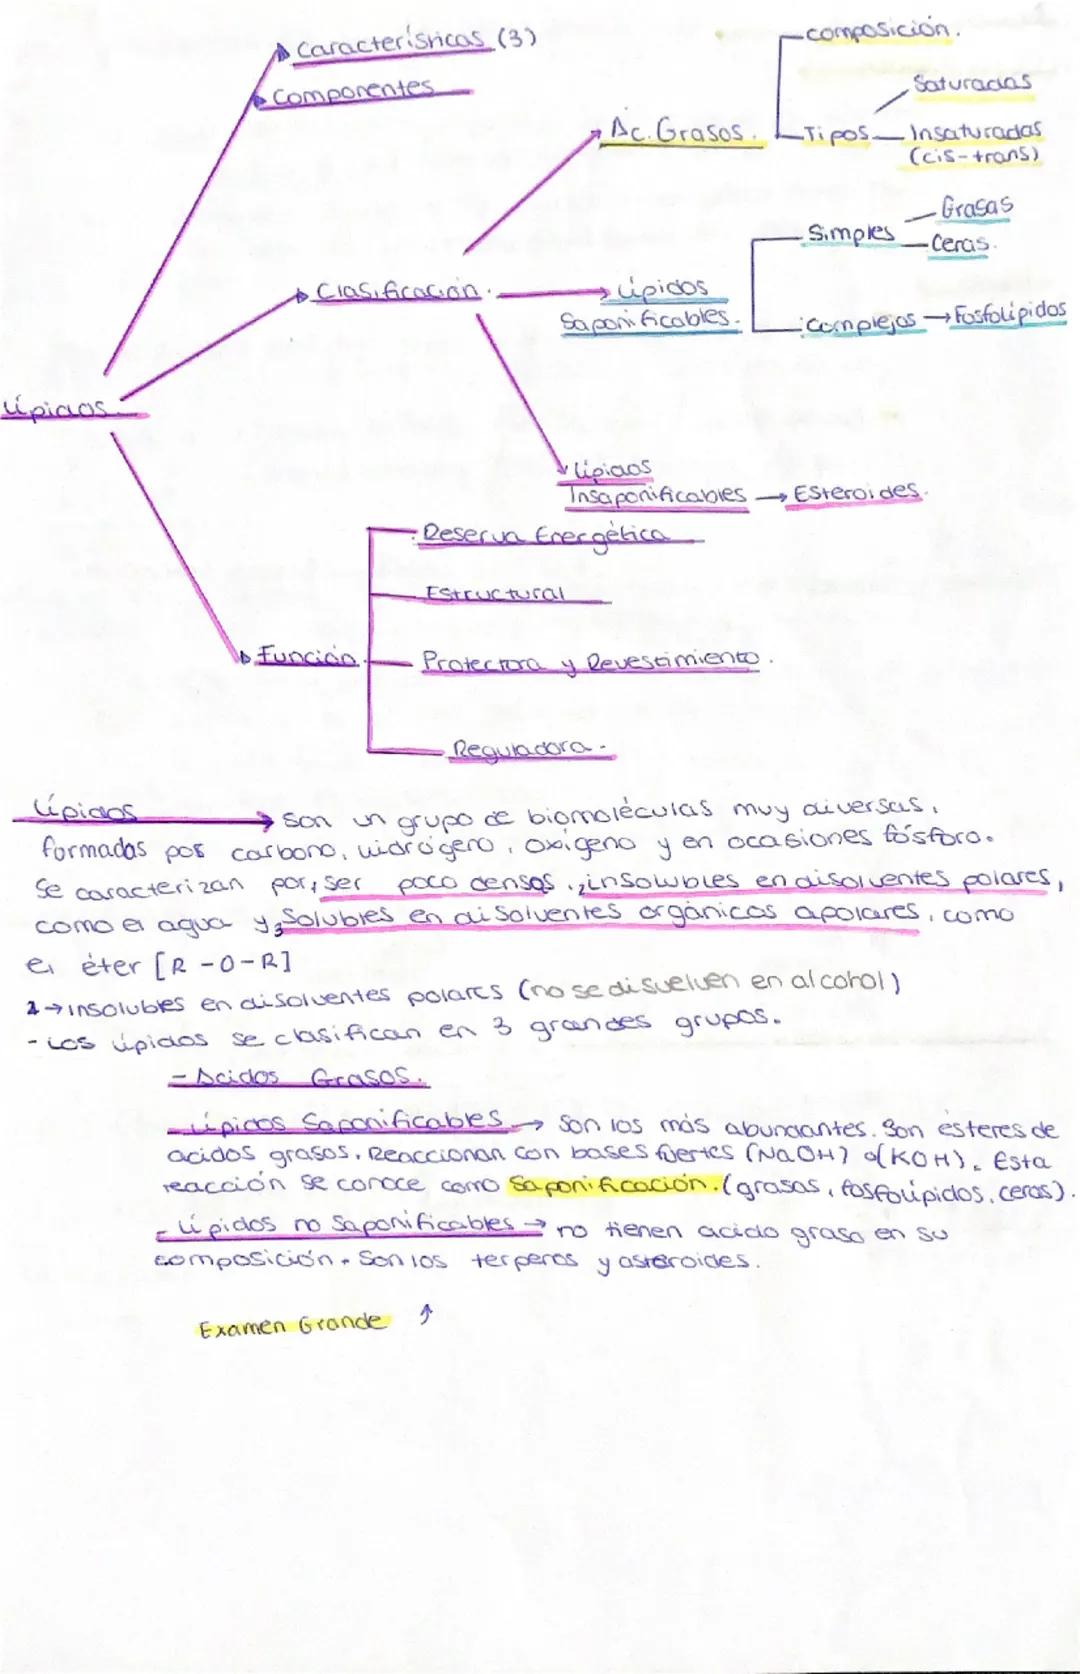 Características (3)
Componentes
composición.
Ac. Grasos.
Tipos
Saturadas
Insaturadas
(cis-trans)
Clasificación.
Lípidos
Saponificables.
Simples
Grasas
Ceras.
Complejos → Fosfolípidos
Lípidos
Lípidos
Insaponificables → Esteroides.
Función
Reserva Energética
Estructural
Protectora y Revestimiento.
Reguladora.
Lípidos → Son un grupo de biomoléculas muy diversas,
formadas por carbono, hidrógeno, oxígeno y en ocasiones fósforo.
Se caracterizan por, 1 ser poco densas, 2 insolubles en disolventes polares,
como el agua y 3 Solubles en disolventes orgánicos apolares, como
el éter [R-O-R]
2 → insolubles en disolventes polares (no se disuelven en alcohol)
- Los lípidos se clasifican en 3 grandes grupos.
- Acidos Grasos.
- Lípidos Saponificables → Son los más abundantes. Son ésteres de
acidos grasos. Reaccionan con bases fuertes (NaOH) o (KOH). Esta
reacción se conoce como Saponificación. (grasas, fosfolípidos, ceras).
- Lípidos no Saponificables → no tienen acido graso en su
composición. Son los terpenos y asteroides.
Examen Grande ↑